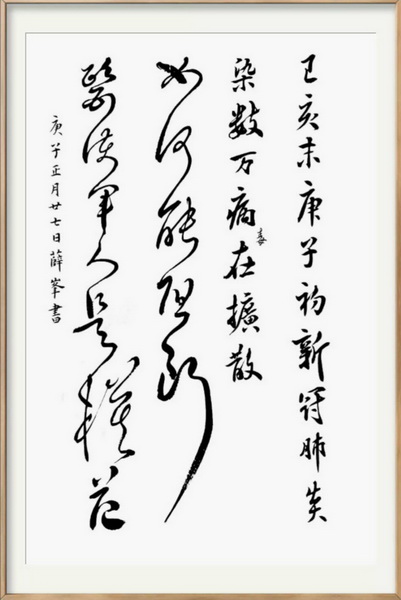 己亥末庚子初新冠肺炎
染数万病毒在擴散
如何能阻断
醫護軍人是模范
庚子正月廿七日薛峯書